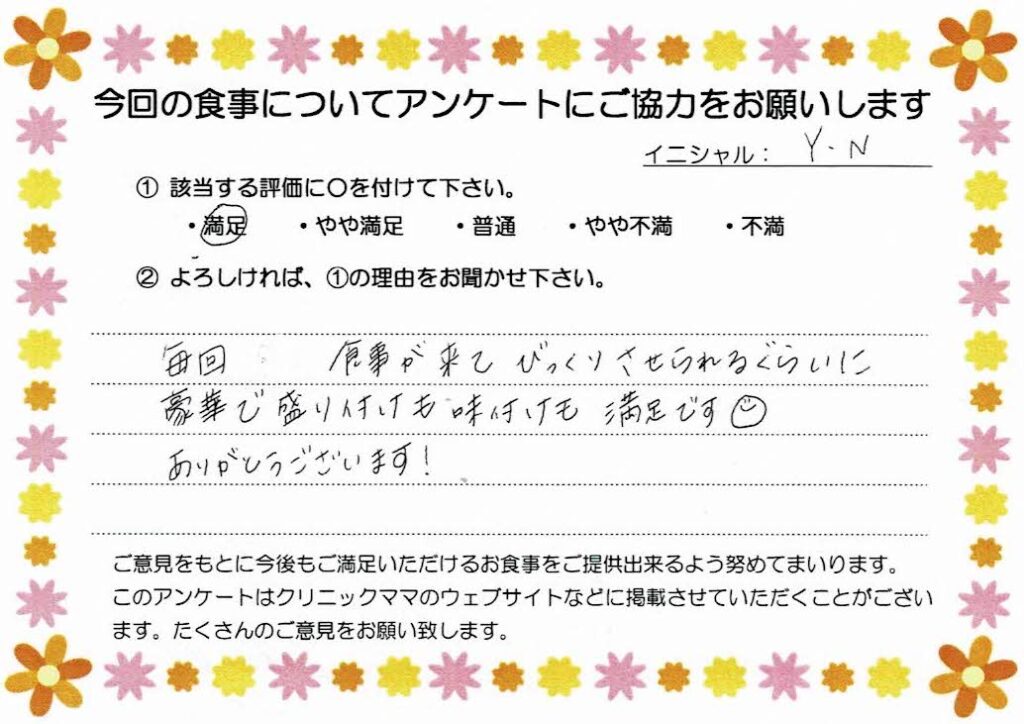 今回の食事についてアンケートにご協力をお願いします
イニシャル： Y.N
① 該当する評価に〇を付けて下さい。
・満足 ・やや満足 ・普通 ・やや不満 ・不満
② よろしければ、①の理由をお聞かせ下さい。
毎回 食事が来てびっくりさせられるぐらいに
豪華で盛り付けも味付けも満足です☺
ありがとうございます!
ご意見をもとに今後もご満足いただけるお食事をご提供出来るよう努めてまいります。
このアンケートはクリニックママのウェブサイトなどに掲載させていただくことがござい
ます。たくさんのご意見をお願い致します。